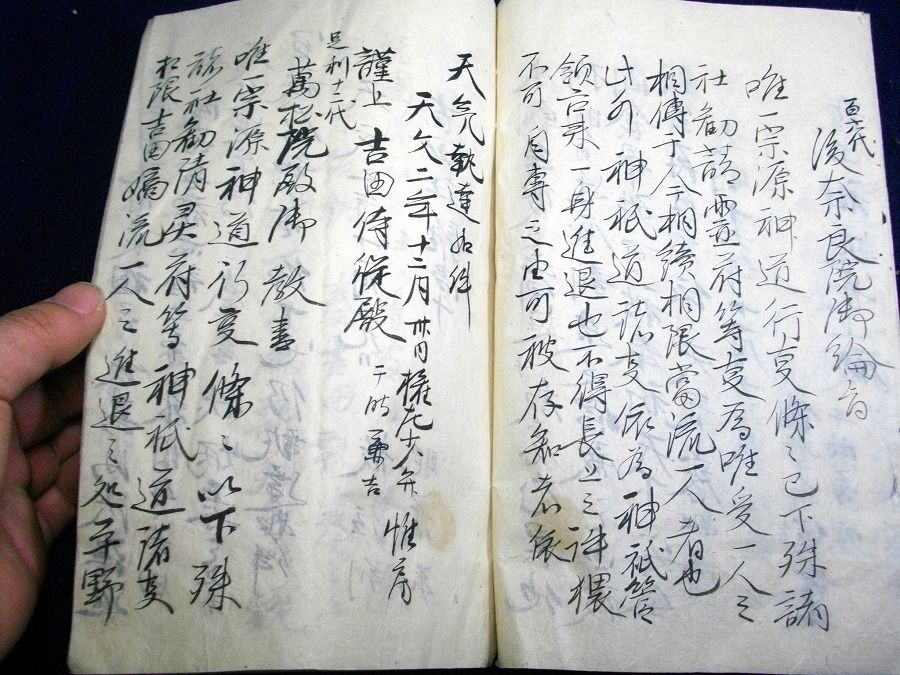 百六代
後奈良院御綸旨
唯一宗源神道行事條々已下殊諸
社勧請霊符等事為唯受一人之
相傳于今相續相限當流一人者也
此外神祇道諸事依為神祇管
領言来一身進退也不得長上之許猥
不可自専之由可被存知者依
天気執達如件
天文二年十二月卅日権左少弁惟房
謹上吉田侍従殿 于時兼右
足利十二代
萬松院殿御教書
唯一宗源神道行事條々以下殊
諸社勧請霊符等神祇道諸事
相限吉田嫡流一人之進退之処平野